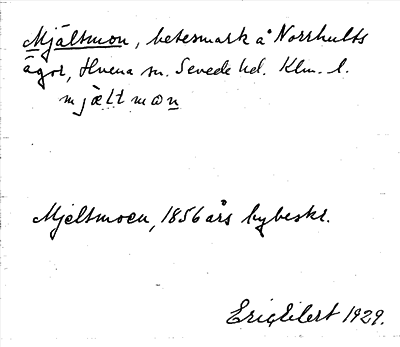 Mjältmon, betesmark å Norrhults
ägor, Hvena sn. Sevede hd. Klm. l.
mjæltmon
Mjeltmoen, 1856 års bybeskr.
Eric Eilert 1929.